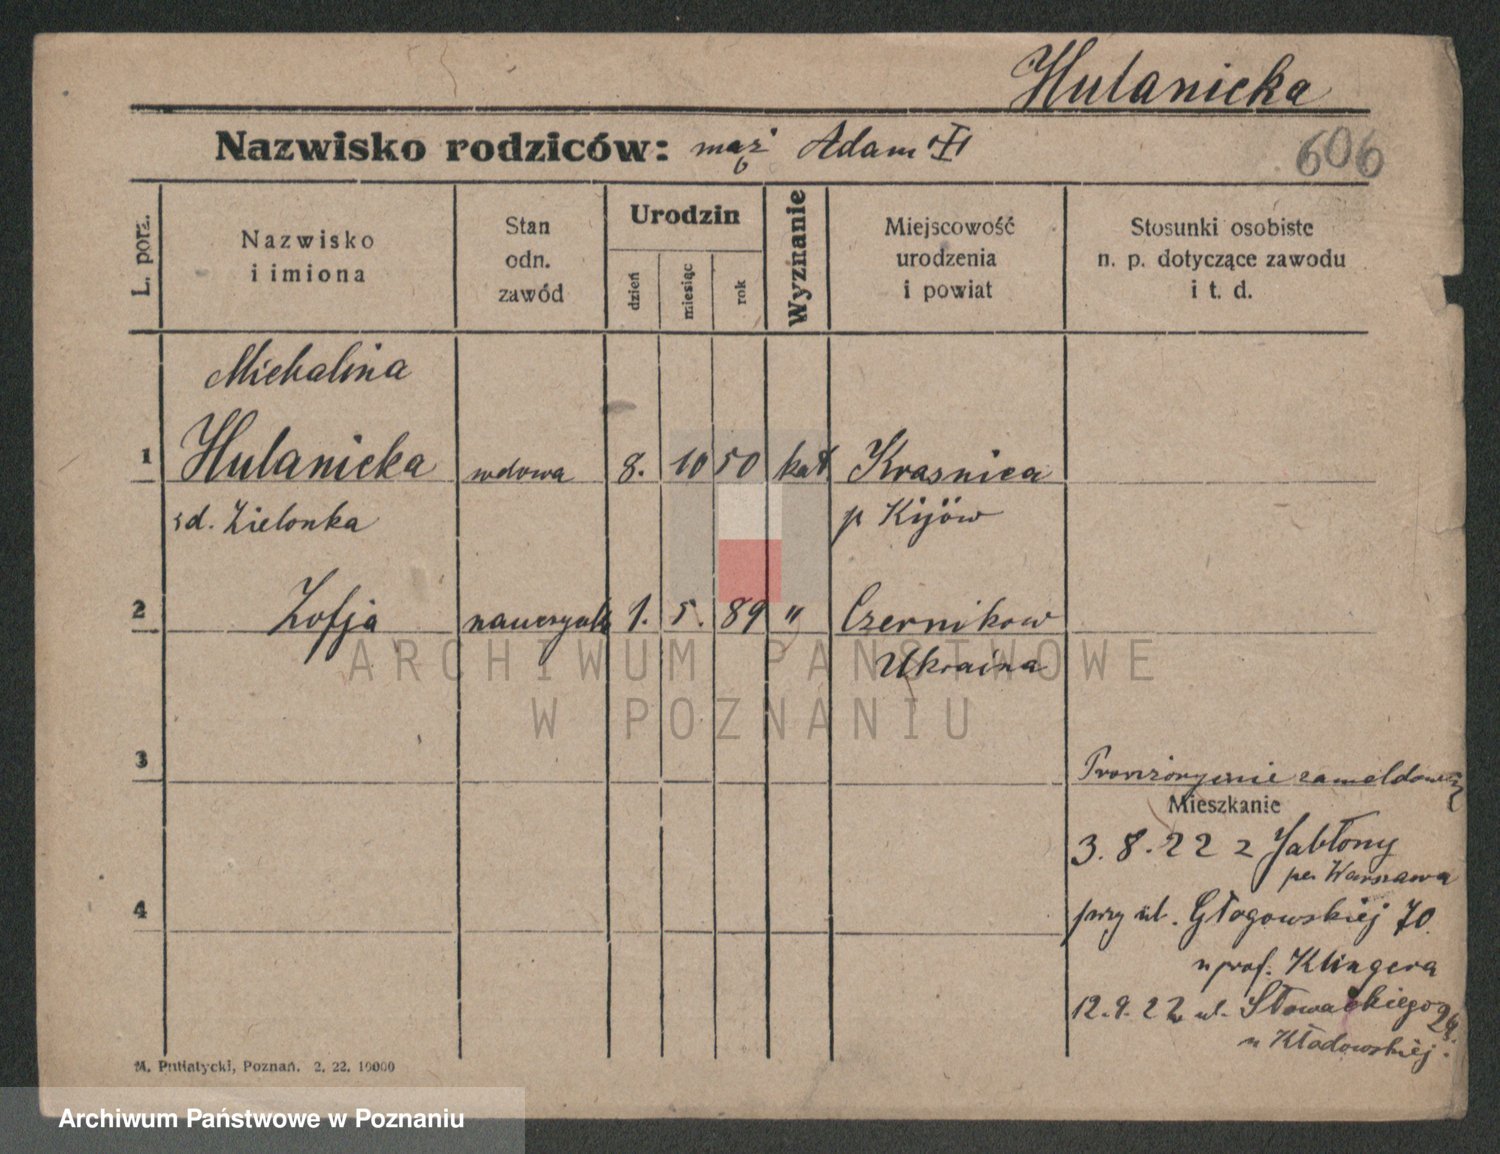 Hulanicka
Nazwisko rodziców: mąż Adam
606
L. porz.
Nazwisko
i imiona
Stan
odn.
zawód
Urodzin
dzień
miesiąc
rok
Wyznanie
Miejscowość
urodzenia
i powiat
Stosunki osobiste
n. p. dotyczące zawodu
i t. d.
Michalina
1 Hulanicka wdowa 8. 10 50 kat Krasnica
sd. Zielonka p Kijów
2 Zofja 1. 5. 89 " Czernikow
Ukraina
ARCHIWUM PAŃSTWOWE
W POZNANIU
3
Mieszkanie
3. 8. 22 z Jabłony
Warszawa
4
przy ul. Głogowskiej 70.
u prof. Klingera
12. 9. 22 ul. Słowackiego 24.
u Kłodowskiej.
M. Putiatycki, Poznań. 2. 22. 10000
Archiwum Państwowe w Poznaniu